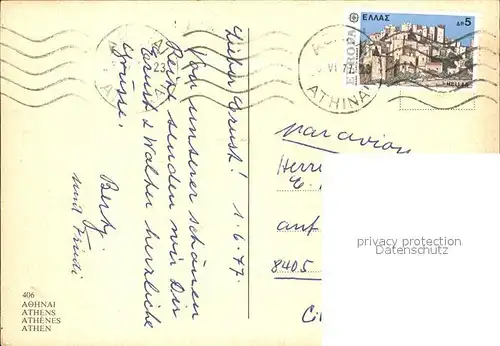 Lieber Ernst! 1.6.77.
Von unserer schönen
Reise senden wir Dir
Ernst & Walter herzliche
Grüsse.
Berty
und Friedi
406
ΑΘΗΝΑΙ
ATHENS
ATHÈNES
ATHEN
EUROPA
ΕΛΛΑΣ
ΔΡ 5
HELLAS
VI 77
ATHINAI
23
par avion
Herrn
E.
auf
8405
privacy protection
Datenschutz